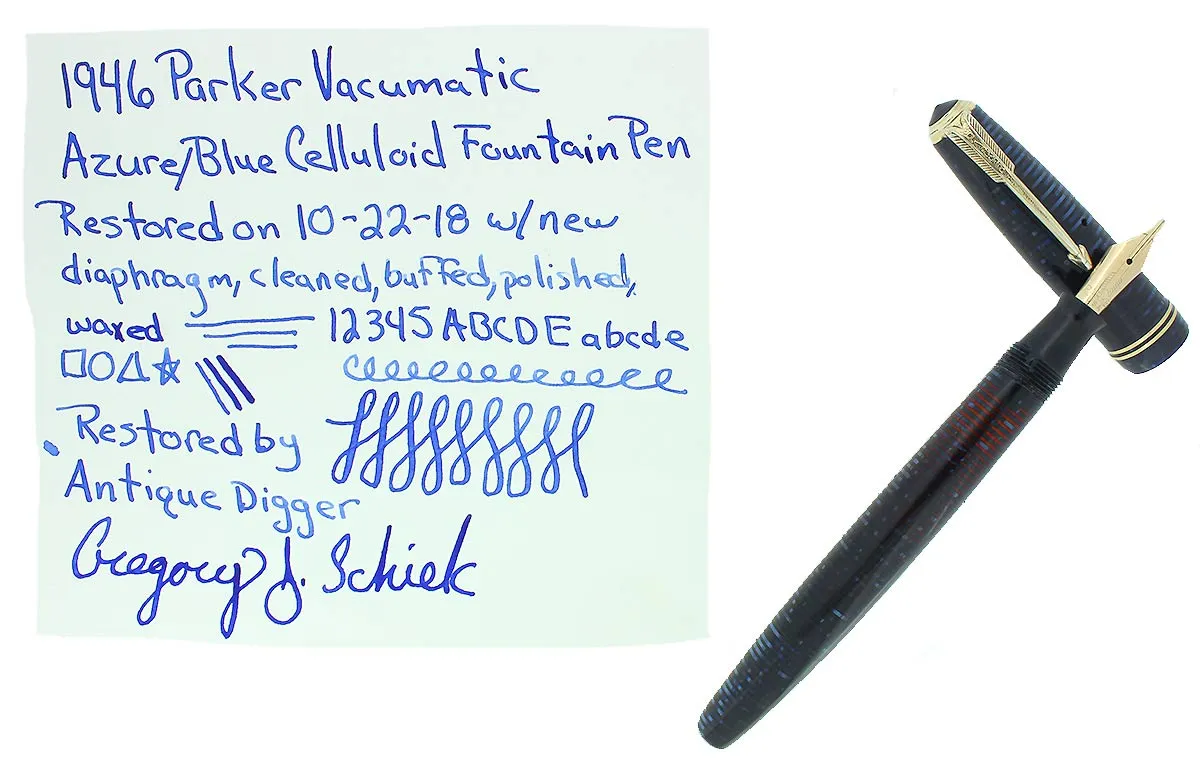 1946 Parker Vacumatic
Azure/Blue Celluloid Fountain Pen
Restored on 10-22-18 w/new
diaphragm, cleaned, buffed, polished,
waxed 12345 ABCDE abcde
Restored by
Antique Digger
Gregory J. Schiek